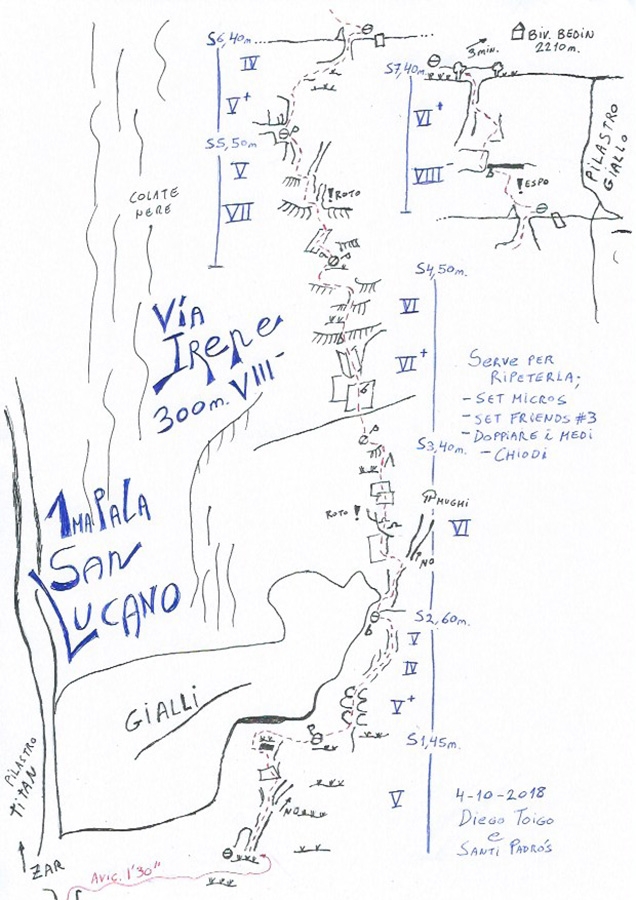 S6,40m.
IV
V+
S5,50m
V
VII
!ROTO
COLATE
NERE
VíA
IRENE
300m. VIII-
BIV. BEDIN
2210m.
3min.
S7,40m
VI+
VIII-
!ESPO
PILASTRO
GIALLO
S4,50m.
VI
VI+
SERVE PER
RIPETERLA;
- SET MICROS
- SET FRIENDS #3
- DOPPIARE i MEDI
- CHIODI
S3,40m.
MUGHI
ROTO !
VI
NO
1MA PALA
SAN
LUCANO
S2,60m.
V
IV
V+
GIALLI
S1,45m.
V
NO
PILASTRO
TITAN
ZAR
AVIC. 1'30"
4-10-2018
DIEGO TOIGO
e
SANTI PADRÓS